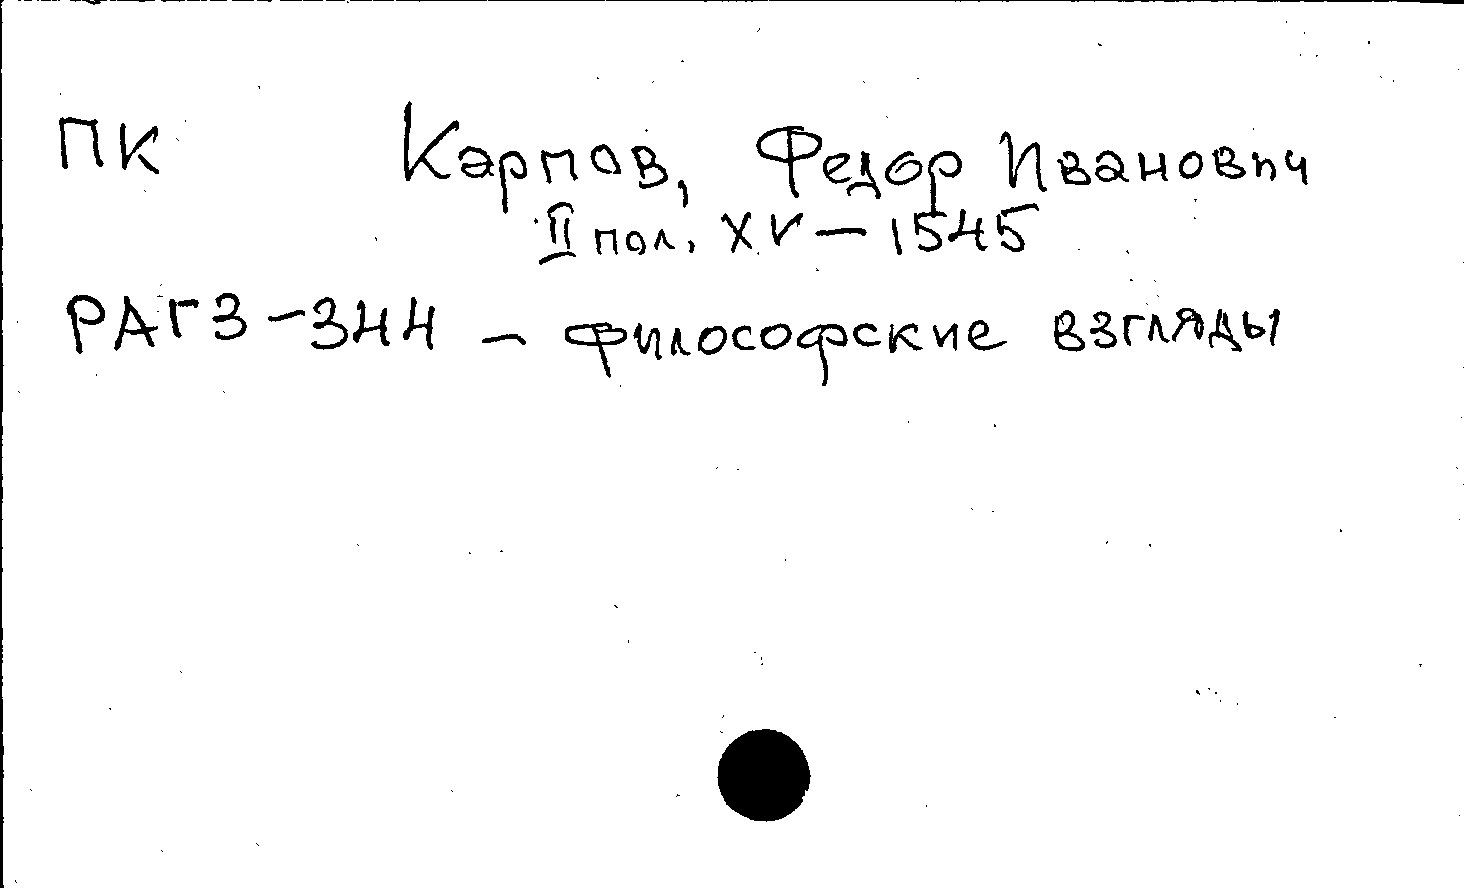 ПК Карпов, Федор Иванович
II пол. XV – 1545
РАГЗ-344 – философские взгляды